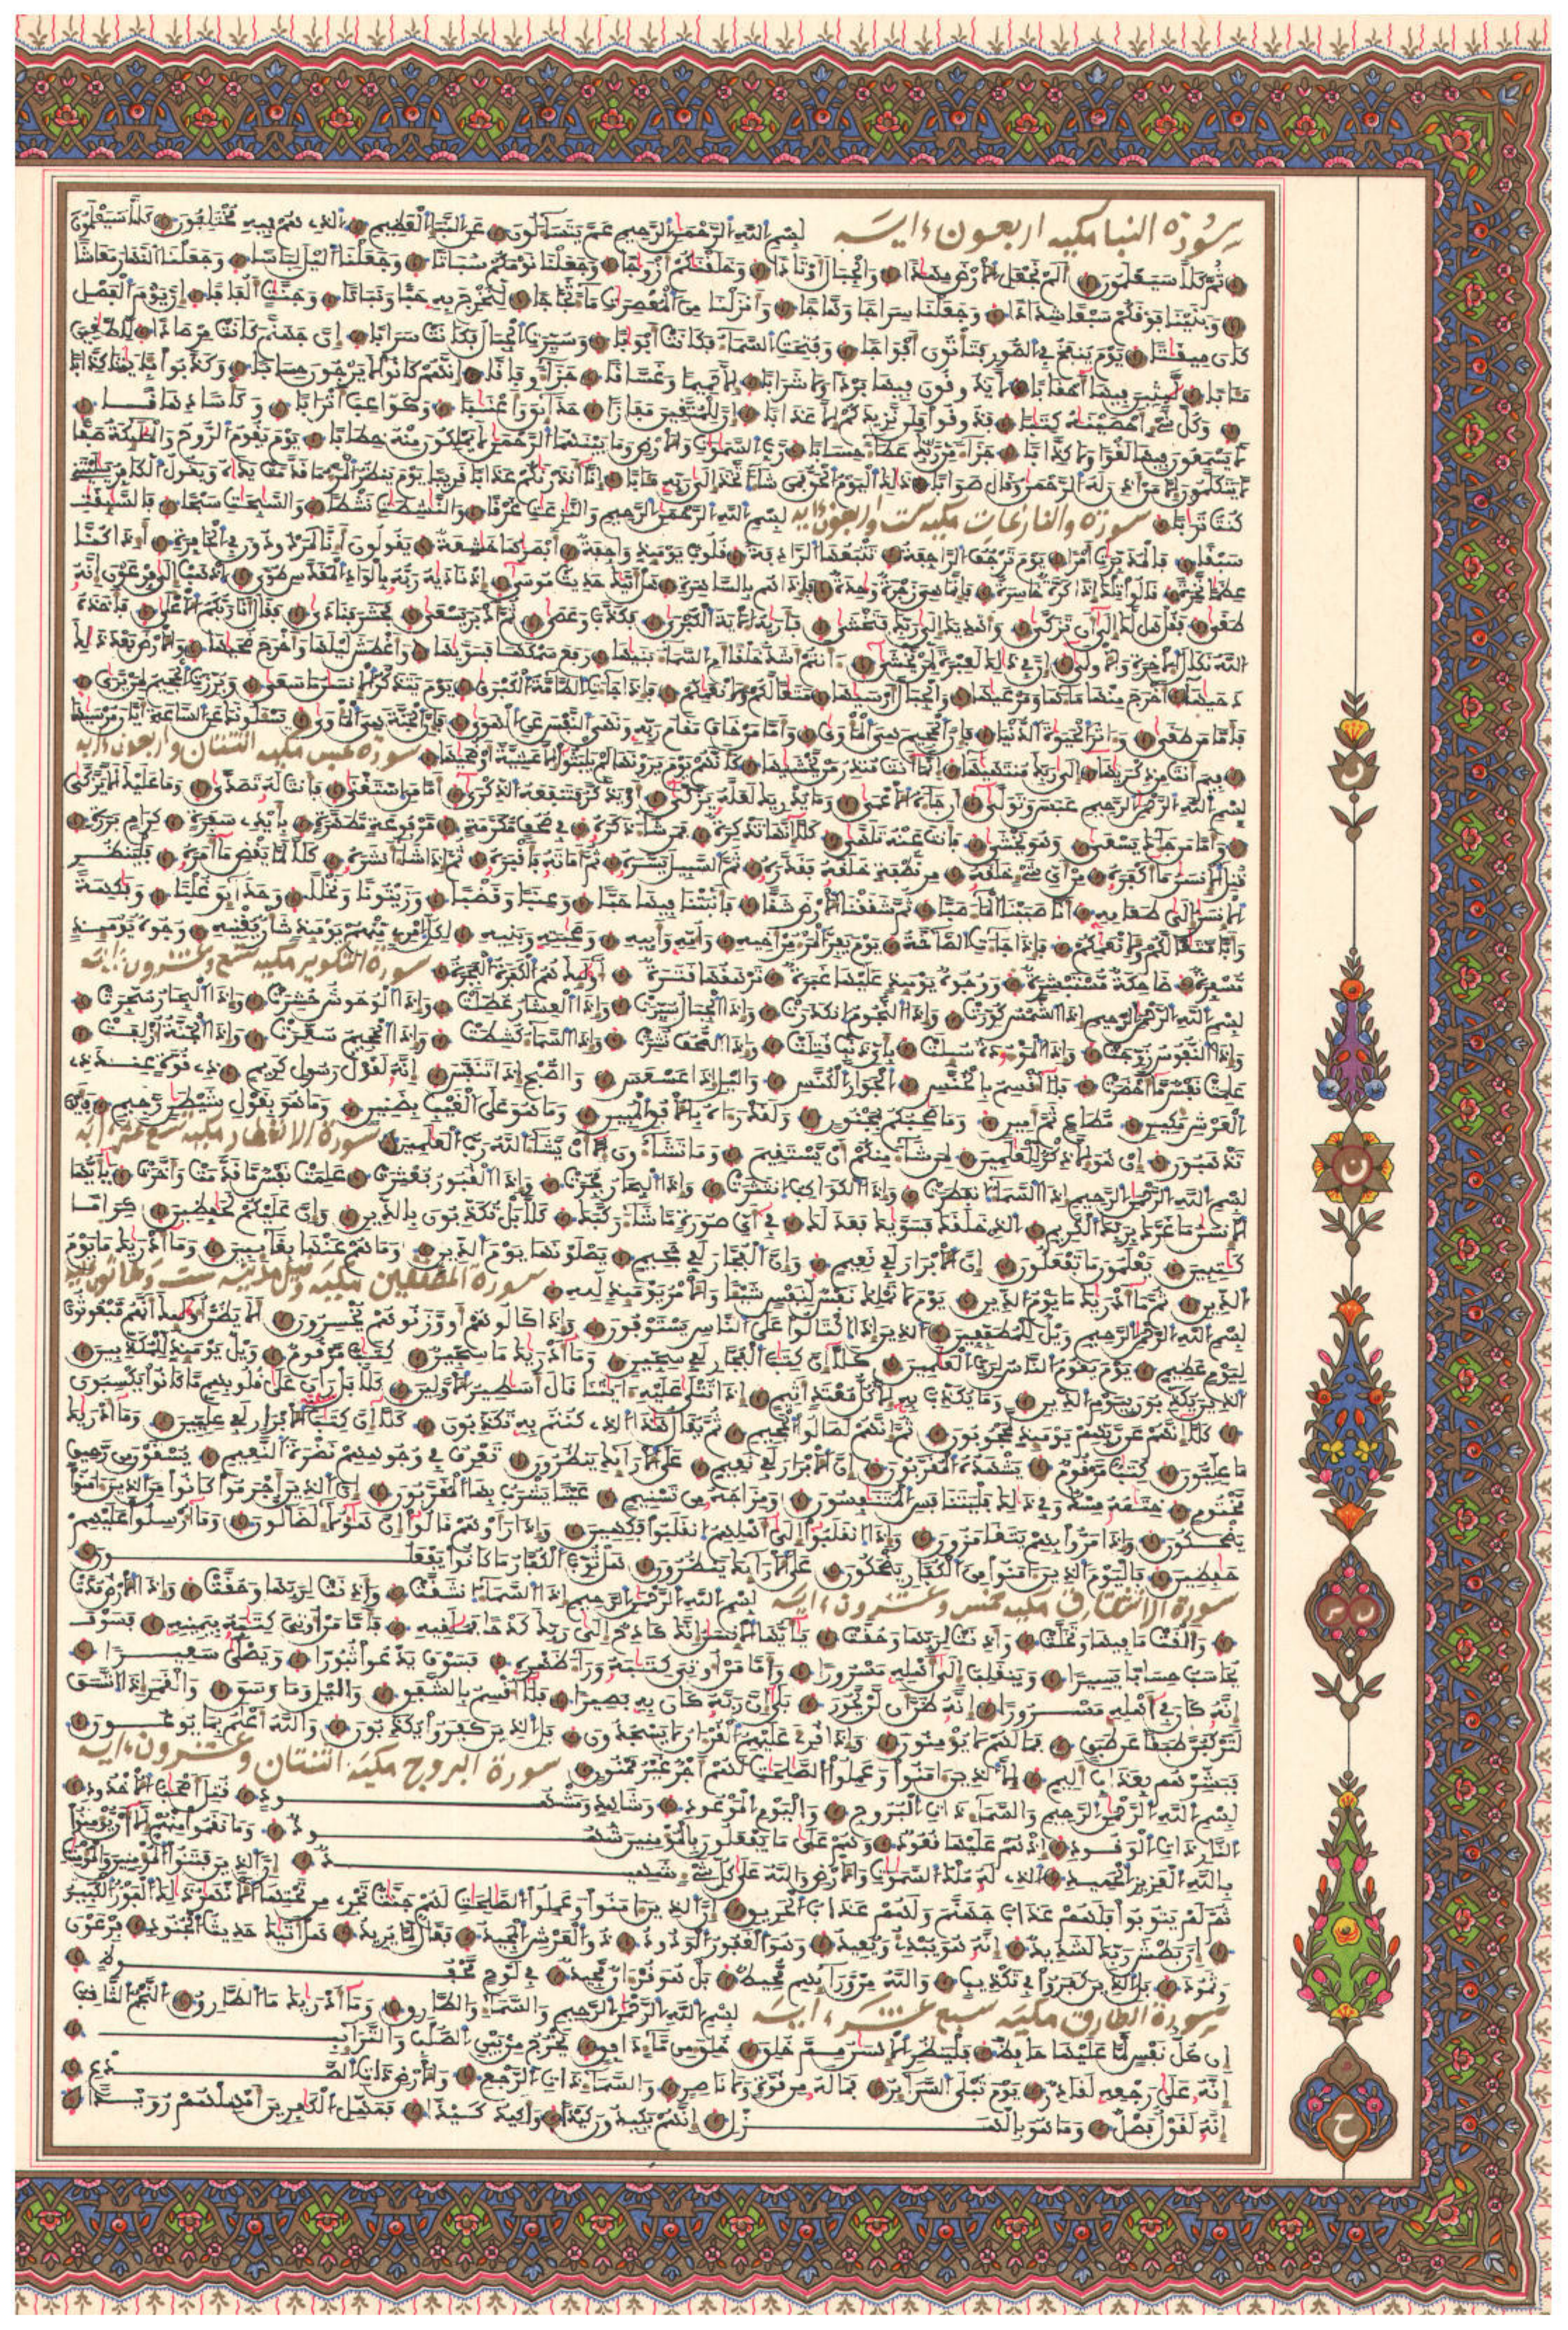 سورة النبإ مكية اربعون ءاية بسم الله الرحمن الرحيم عم يتساءلون عن النبإ العظيم الذي هم فيه مختلفون كلا سيعلمون
ثم كلا سيعلمون ألم نجعل الأرض مهادا والجبال أوتادا وخلقناكم أزواجا وجعلنا نومكم سباتا وجعلنا اليل لباسا وجعلنا النهار معاشا
وبنينا فوقكم سبعا شدادا وجعلنا سراجا وهاجا وأنزلنا من المعصرات ماء ثجاجا لنخرج به حبا ونباتا وجنات ألفافا إن يوم الفصل
كان ميقاتا يوم ينفخ في الصور فتأتون أفواجا وفتحت السماء فكانت أبوابا وسيرت الجبال فكانت سرابا إن جهنم كانت مرصادا للطاغين
مئابا لابثين فيها أحقابا لا يذوقون فيها بردا ولا شرابا إلا حميما وغساقا جزاء وفاقا إنهم كانوا لا يرجون حسابا وكذبوا بئاياتنا كذابا
وكل شيء أحصيناه كتابا فذوقوا فلن نزيدكم إلا عذابا إن للمتقين مفازا حدائق وأعنابا وكواعب أترابا وكأسا دهاقا
لا يسمعون فيها لغوا ولا كذابا جزاء من ربك عطاء حسابا رب السماوات والأرض وما بينهما الرحمن لا يملكون منه خطابا يوم يقوم الروح والملائكة صفا
لا يتكلمون إلا من أذن له الرحمن وقال صوابا ذلك اليوم الحق فمن شاء اتخذ إلى ربه مئابا إنا أنذرناكم عذابا قريبا يوم ينظر المرء ما قدمت يداه ويقول الكافر ياليتني
كنت ترابا سورة والنازعات مكية ست واربعون ءاية بسم الله الرحمن الرحيم والنازعات غرقا والناشطات نشطا والسابحات سبحا فالسابقات
سبقا فالمدبرات أمرا يوم ترجف الراجفة تتبعها الرادفة قلوب يومئذ واجفة أبصارها خاشعة يقولون أءنا لمردودون في الحافرة إذا كنا
عظاما نخرة قالوا تلك إذا كرة خاسرة فإنما هي زجرة واحدة فإذا هم بالساهرة هل أتيك حديث موسى إذ ناديه ربه بالواد المقدس طوى اذهب إلى فرعون إنه
طغى فقل هل لك إلى أن تزكى وأهديك إلى ربك فتخشى فأريه الأية الكبرى فكذب وعصى ثم أدبر يسعى فحشر فنادى فقال أنا ربكم الأعلى فأخذه
الله نكال الأخرة والأولى إن في ذلك لعبرة لمن يخشى ءأنتم أشد خلقا أم السماء بنيها رفع سمكها فسويها وأغطش ليلها وأخرج ضحيها والأرض بعد ذلك
دحيها أخرج منها ماءها ومرعيها والجبال أرسيها متاعا لكم ولأنعامكم فإذا جاءت الطامة الكبرى يوم يتذكر الإنسان ما سعى وبرزت الجحيم لمن يرى
فأما من طغى وءاثر الحيوة الدنيا فإن الجحيم هي المأوى وأما من خاف مقام ربه ونهى النفس عن الهوى فإن الجنة هي المأوى يسئلونك عن الساعة أيان مرسيها
فيم أنت من ذكريها إلى ربك منتهيها إنما أنت منذر من يخشيها كأنهم يوم يرونها لم يلبثوا إلا عشية أو ضحيها سورة عبس مكية اثنتان واربعون ءاية
بسم الله الرحمن الرحيم عبس وتولى أن جاءه الأعمى وما يدريك لعله يزكى أو يذكر فتنفعه الذكرى أما من استغنى فأنت له تصدى وما عليك ألا يزكى
وأما من جاءك يسعى وهو يخشى فأنت عنه تلهى كلا إنها تذكرة فمن شاء ذكره في صحف مكرمة مرفوعة مطهرة بأيدي سفرة كرام بررة
قتل الإنسان ما أكفره من أي شيء خلقه من نطفة خلقه فقدره ثم السبيل يسره ثم أماته فأقبره ثم إذا شاء أنشره كلا لما يقض ما أمره فلينظر
الإنسان إلى طعامه إنا صببنا الماء صبا ثم شققنا الأرض شقا فأنبتنا فيها حبا وعنبا وقضبا وزيتونا ونخلا وحدائق غلبا وفاكهة
وأبا متاعا لكم ولأنعامكم فإذا جاءت الصاخة يوم يفر المرء من أخيه وأمه وأبيه وصاحبته وبنيه لكل امرئ منهم يومئذ شأن يغنيه وجوه يومئذ
مسفرة ضاحكة مستبشرة ووجوه يومئذ عليها غبرة ترهقها قترة أولئك هم الكفرة الفجرة سورة التكوير مكية تسع وعشرون ءاية
بسم الله الرحمن الرحيم إذا الشمس كورت وإذا النجوم انكدرت وإذا الجبال سيرت وإذا العشار عطلت وإذا الوحوش حشرت وإذا البحار سجرت
وإذا النفوس زوجت وإذا الموءودة سئلت بأي ذنب قتلت وإذا الصحف نشرت وإذا السماء كشطت وإذا الجحيم سعرت وإذا الجنة أزلفت
علمت نفس ما أحضرت فلا أقسم بالخنس الجوار الكنس واليل إذا عسعس والصبح إذا تنفس إنه لقول رسول كريم ذي قوة عند ذي
العرش مكين مطاع ثم أمين وما صاحبكم بمجنون ولقد رءاه بالأفق المبين وما هو على الغيب بضنين وما هو بقول شيطان رجيم فأين
تذهبون إن هو إلا ذكر للعالمين لمن شاء منكم أن يستقيم وما تشاءون إلا أن يشاء الله رب العالمين سورة الانفطار مكية تسع عشرة ءاية
بسم الله الرحمن الرحيم إذا السماء انفطرت وإذا الكواكب انتثرت وإذا البحار فجرت وإذا القبور بعثرت علمت نفس ما قدمت وأخرت يأيها
الإنسان ما غرك بربك الكريم الذي خلقك فسويك فعدلك في أي صورة ما شاء ركبك كلا بل تكذبون بالدين وإن عليكم لحافظين كراما
كاتبين يعلمون ما تفعلون إن الأبرار لفي نعيم وإن الفجار لفي جحيم يصلونها يوم الدين وما هم عنها بغائبين وما أدريك ما يوم
الدين ثم ما أدريك ما يوم الدين يوم لا تملك نفس لنفس شيئا والأمر يومئذ لله سورة المطففين مكية وقيل مدنية ست وثلاثون ءاية
بسم الله الرحمن الرحيم ويل للمطففين الذين إذا اكتالوا على الناس يستوفون وإذا كالوهم أو وزنوهم يخسرون ألا يظن أولئك أنهم مبعوثون
ليوم عظيم يوم يقوم الناس لرب العالمين كلا إن كتاب الفجار لفي سجين وما أدريك ما سجين كتاب مرقوم ويل يومئذ للمكذبين
الذين يكذبون بيوم الدين وما يكذب به إلا كل معتد أثيم إذا تتلى عليه ءاياتنا قال أساطير الأولين كلا بل ران على قلوبهم ما كانوا يكسبون
كلا إنهم عن ربهم يومئذ لمحجوبون ثم إنهم لصالوا الجحيم ثم يقال هذا الذي كنتم به تكذبون كلا إن كتاب الأبرار لفي عليين وما أدريك
ما عليون كتاب مرقوم يشهده المقربون إن الأبرار لفي نعيم على الأرائك ينظرون تعرف في وجوههم نضرة النعيم يسقون من رحيق
مختوم ختامه مسك وفي ذلك فليتنافس المتنافسون ومزاجه من تسنيم عينا يشرب بها المقربون إن الذين أجرموا كانوا من الذين ءامنوا
يضحكون وإذا مروا بهم يتغامزون وإذا انقلبوا إلى أهلهم انقلبوا فاكهين وإذا رأوهم قالوا إن هؤلاء لضالون وما أرسلوا عليهم
حافظين فاليوم الذين ءامنوا من الكفار يضحكون على الأرائك ينظرون هل ثوب الكفار ما كانوا يفعلون
سورة الانشقاق مكية خمس وعشرون ءاية بسم الله الرحمن الرحيم إذا السماء انشقت وأذنت لربها وحقت وإذا الأرض مدت
وألقت ما فيها وتخلت وأذنت لربها وحقت يأيها الإنسان إنك كادح إلى ربك كدحا فملاقيه فأما من أوتي كتابه بيمينه فسوف
يحاسب حسابا يسيرا وينقلب إلى أهله مسرورا وأما من أوتي كتابه وراء ظهره فسوف يدعوا ثبورا ويصلى سعيرا
إنه كان في أهله مسرورا إنه ظن أن لن يحور بلى إن ربه كان به بصيرا فلا أقسم بالشفق واليل وما وسق والقمر إذا اتسق
لتركبن طبقا عن طبق فما لهم لا يؤمنون وإذا قرئ عليهم القرءان لا يسجدون بل الذين كفروا يكذبون والله أعلم بما يوعون
فبشرهم بعذاب أليم إلا الذين ءامنوا وعملوا الصالحات لهم أجر غير ممنون سورة البروج مكية اثنتان وعشرون ءاية
بسم الله الرحمن الرحيم والسماء ذات البروج واليوم الموعود وشاهد ومشهود قتل أصحاب الأخدود
النار ذات الوقود إذ هم عليها قعود وهم على ما يفعلون بالمؤمنين شهود وما نقموا منهم إلا أن يؤمنوا
بالله العزيز الحميد الذي له ملك السماوات والأرض والله على كل شيء شهيد إن الذين فتنوا المؤمنين والمؤمنات
ثم لم يتوبوا فلهم عذاب جهنم ولهم عذاب الحريق إن الذين ءامنوا وعملوا الصالحات لهم جنات تجري من تحتها الأنهار ذلك الفوز الكبير
إن بطش ربك لشديد إنه هو يبدئ ويعيد وهو الغفور الودود ذو العرش المجيد فعال لما يريد هل أتيك حديث الجنود فرعون
وثمود بل الذين كفروا في تكذيب والله من ورائهم محيط بل هو قرءان مجيد في لوح محفوظ
سورة الطارق مكية سبع عشرة ءاية بسم الله الرحمن الرحيم والسماء والطارق وما أدريك ما الطارق النجم الثاقب
إن كل نفس لما عليها حافظ فلينظر الإنسان مم خلق خلق من ماء دافق يخرج من بين الصلب والترائب
إنه على رجعه لقادر يوم تبلى السرائر فما له من قوة ولا ناصر والسماء ذات الرجع والأرض ذات الصدع
إنه لقول فصل وما هو بالهزل إنهم يكيدون كيدا وأكيد كيدا فمهل الكافرين أمهلهم رويدا
ن
ح